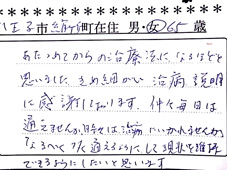 王子市 町在住 男・女 65歳
あたためてからの治療法に、なるほどと
思いました。きめ細かい治病説明
に感謝しております。仲々毎日は
通えませんが、時々は治療にいかれませんが、
なるべく 通えるようにして現状を維持
できるようにしたいと思います